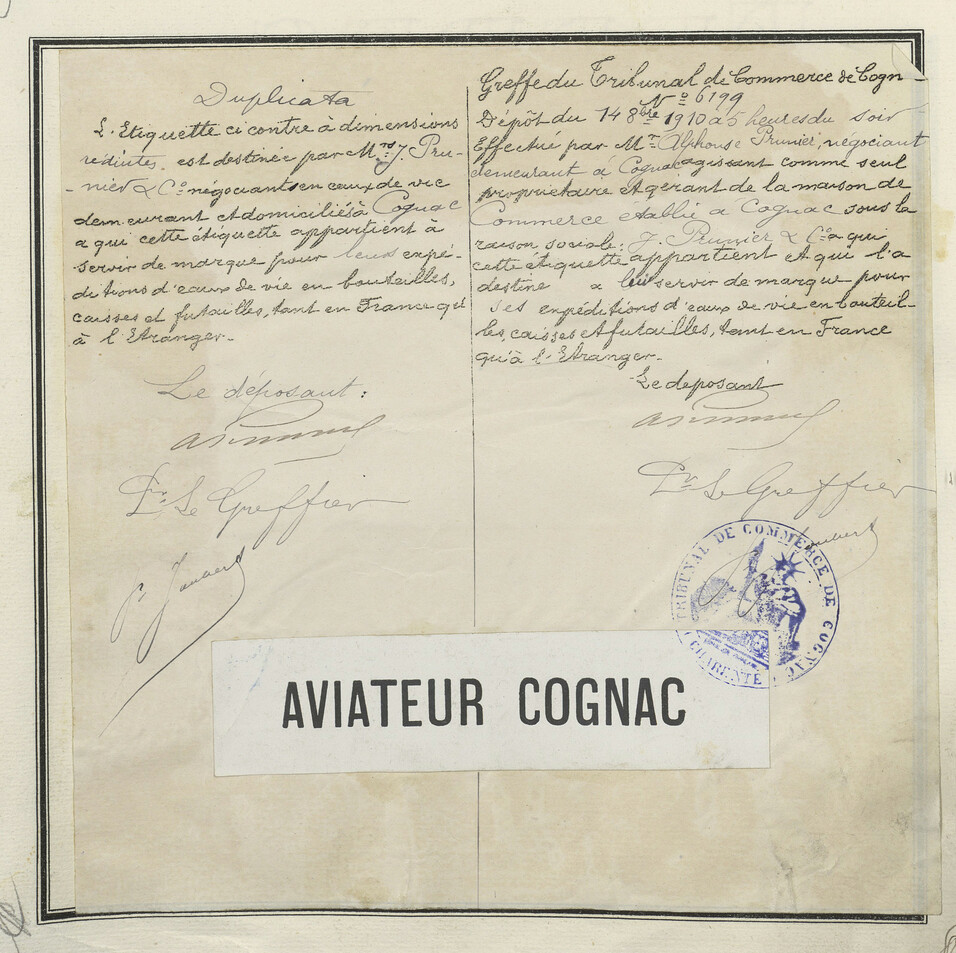 Duplicata
L'Etiquette ci contre à dimensions
réduites, est destinée par Mrs J. Pru-
-nier & Co négociants en eaux de vie
demeurant et domiciliés à Cognac
a qui cette étiquette appartient à
servir de marque pour leurs expé-
ditions d'eaux de vie en bouteilles,
caisses et futailles, tant en France qu'
à l'Etranger.-
Le déposant:
Pr. Le Greffier
Greffe du Tribunal de Commerce de Cogn-
No 6199
Dépôt du 14 8bre 1910 à 5 heures du soir
Effectué par Mr Alphonse Prunier, négociant
demeurant à Cognac agissant comme seul
propriétaire et gérant de la maison de
Commerce établie à Cognac sous la
raison sociale: J. Prunier & Co a qui
cette étiquette appartient et qui l'a
destine a lui servir de marque pour
ses expéditions d'eaux de vie en bouteil-
les, caisses et futailles, tant en France
qu'à l'Etranger.-
Le déposant
Pr. Le Greffier
TRIBUNAL DE COMMERCE DE COGNAC
(CHARENTE)
AVIATEUR COGNAC